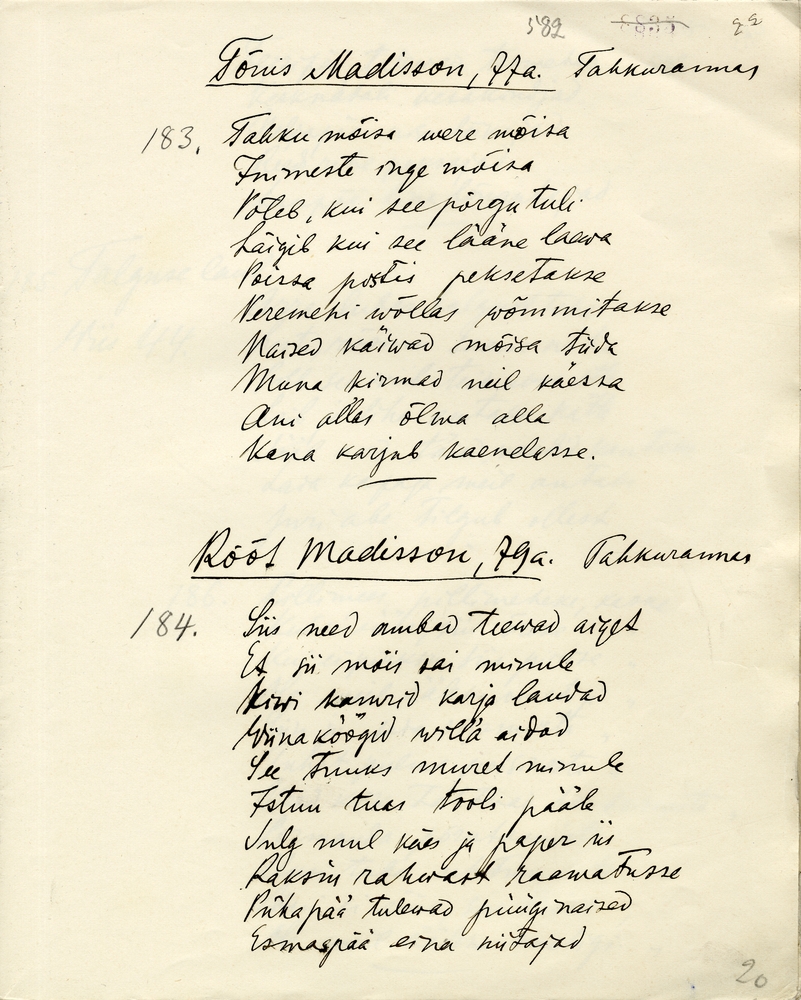 582 99
Tõnis Madisson, 77a. Tahkurannas
183. Tahku mõisa were mõisa
Inimeste inge mõisa
Põleb, kui see põrgu tuli
Läigib kui see lääne laewa
Poissa postis peksetakse
Veremehi wõllas wõmmitakse
Naised käiwad mõisa tüda
Muna kirmad neil käessa
Ani allas õlma alla
Kana karjub kaenelasse.
Rööt Madisson, 79a. Tahkurannas
184. Siis need ambad teewad aiget
Et sii mõis sai minule
Kiwi kamrid karja laudad
Wiinaköögid willa aidad
See tuuks muret minule
Istun tuas tooli pääle
Sulg mul käes ja paper iis
Raksin rahwast raamatusse
Pühapää tulewad püüginaised
Esmaspää eina niitajad
20